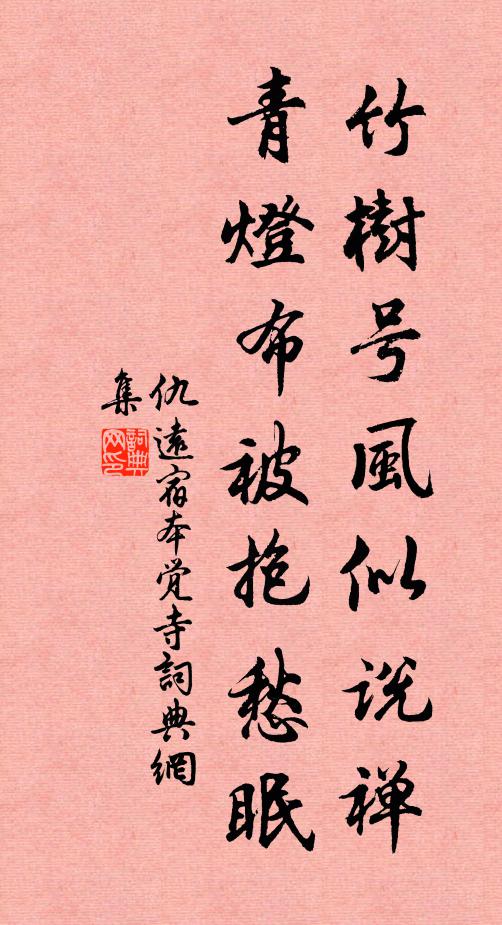 竹樹号風似说禅
青燈布被抱愁眠
仇遠宿本觉寺詞典網
集
詞典
网印